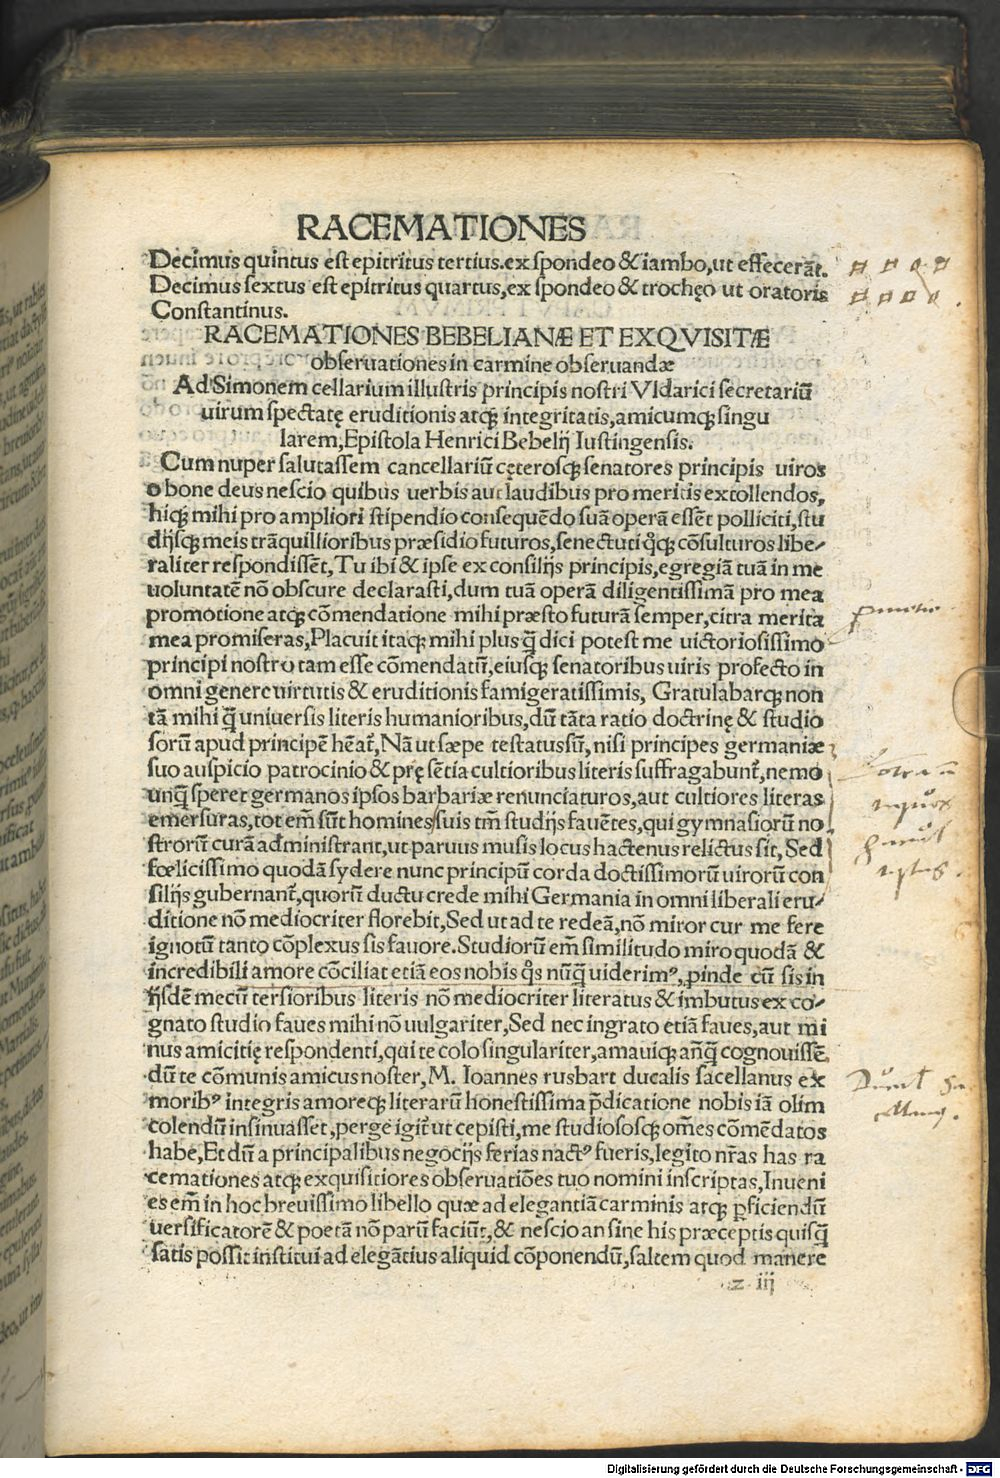 RACEMATIONES
Decimus quintus est epitritus tertius.ex spondeo & iambo,ut effecerāt.
Decimus sextus est epitritus quartus,ex spondeo & trochęo ut oratoris
Constantinus.
RACEMATIONES BEBELIANÆ ET EXQVISITÆ
obseruationes in carmine obseruandæ
Ad Simonem cellarium illustris principis nostri Vldarici secretariū
uirum spectatę eruditionis atqꝫ integritatis,amicumqꝫ singu
larem,Epistola Henrici Bebelij Iustingensis.
Cum nuper salutassem cancellariū cęterosqꝫ senatores principis uiros
o bone deus nescio quibus uerbis aut laudibus pro meritis extollendos,
hiqꝫ mihi pro ampliori stipendio consequēdo suā operā essēt polliciti,stu
dijsqꝫ meis trāquillioribus præsidio futuros,senectuti qꝫ cōsulturos libe/
raliter respondissēt,Tu ibi & ipse ex consilijs principis,egregiā tuā in me
uoluntatē nō obscure declarasti,dum tuā operā diligentissimā pro mea
promotione atqꝫ cōmendatione mihi præsto futurā semper,citra merita
mea promiseras,Placuit itaqꝫ mihi plus q̄ dici potest me uictoriosissimo
principi nostro tam esse cōmendatū,eiusqꝫ senatoribus uiris profecto in
omni genere uirtutis & eruditionis famigeratissimis, Gratulabarqꝫ non
tā mihi q̄ uniuersis literis humanioribus,dū tāta ratio doctrinę & studio
sorū apud principē hēat̄,Nā ut sæpe testatus sū,nisi principes germaniæ
suo auspicio patrocinio & pręsētia cultioribus literis suffragabunt̄,nemo
unq̄ speret germanos ipsos barbariæ renunciaturos,aut cultiores literas
emersuras,tot em̄ sūt homines suis tm̄ studijs fauētes,qui gymnasiorū no
strorū curā administrant,ut paruus musis locus hactenus relictus sit, Sed
fœlicissimo quodā sydere nunc principū corda doctissimorū uirorū con
silijs gubernant̄,quorū ductu crede mihi Germania in omni liberali eru/
ditione nō mediocriter florebit,Sed ut ad te redeā,nō miror cur me fere
ignotū tanto cōplexus sis fauore.Studiorū em̄ similitudo miro quodā &
incredibili amore cōciliat etiā eos nobis q̊s nūq̄ uiderimꝰ,ꝓinde cū sis in
ijsdē mecū tersioribus literis nō mediocriter literatus & imbutus ex co/
gnato studio faues mihi nō uulgariter,Sed nec ingrato etiā faues,aut mi
nus amicitię respondenti,qui te colo singulariter,amauiqꝫ añq̄ cognouissē
dū te cōmunis amicus noster, M. Ioannes rusbart ducalis sacellanus ex
moribꝰ integris amoreqꝫ literarū honestissima p̄dicatione nobis iā olim
colendū insinuasset,perge igit̄ ut cepisti,me studiososqꝫ om̄es cōmēdatos
habe,Et dū a principalibus negocijs ferias nactꝰ fueris,legito nr̄as has ra
cemationes atqꝫ exquisitiores obseruatiōes tuo nomini inscriptas,Inueni
es em̄ in hoc breuissimo libello quæ ad elegantiā carminis atqꝫ ꝑficiendū
uersificatorē & poetā nō parū faciūt,& nescio an sine his præceptis quisq̄
satis possit institui ad elegātius aliquid cōponendū,saltem quod manere
z iij
Digitalisierung gefördert durch die Deutsche Forschungsgemeinschaft - DFG